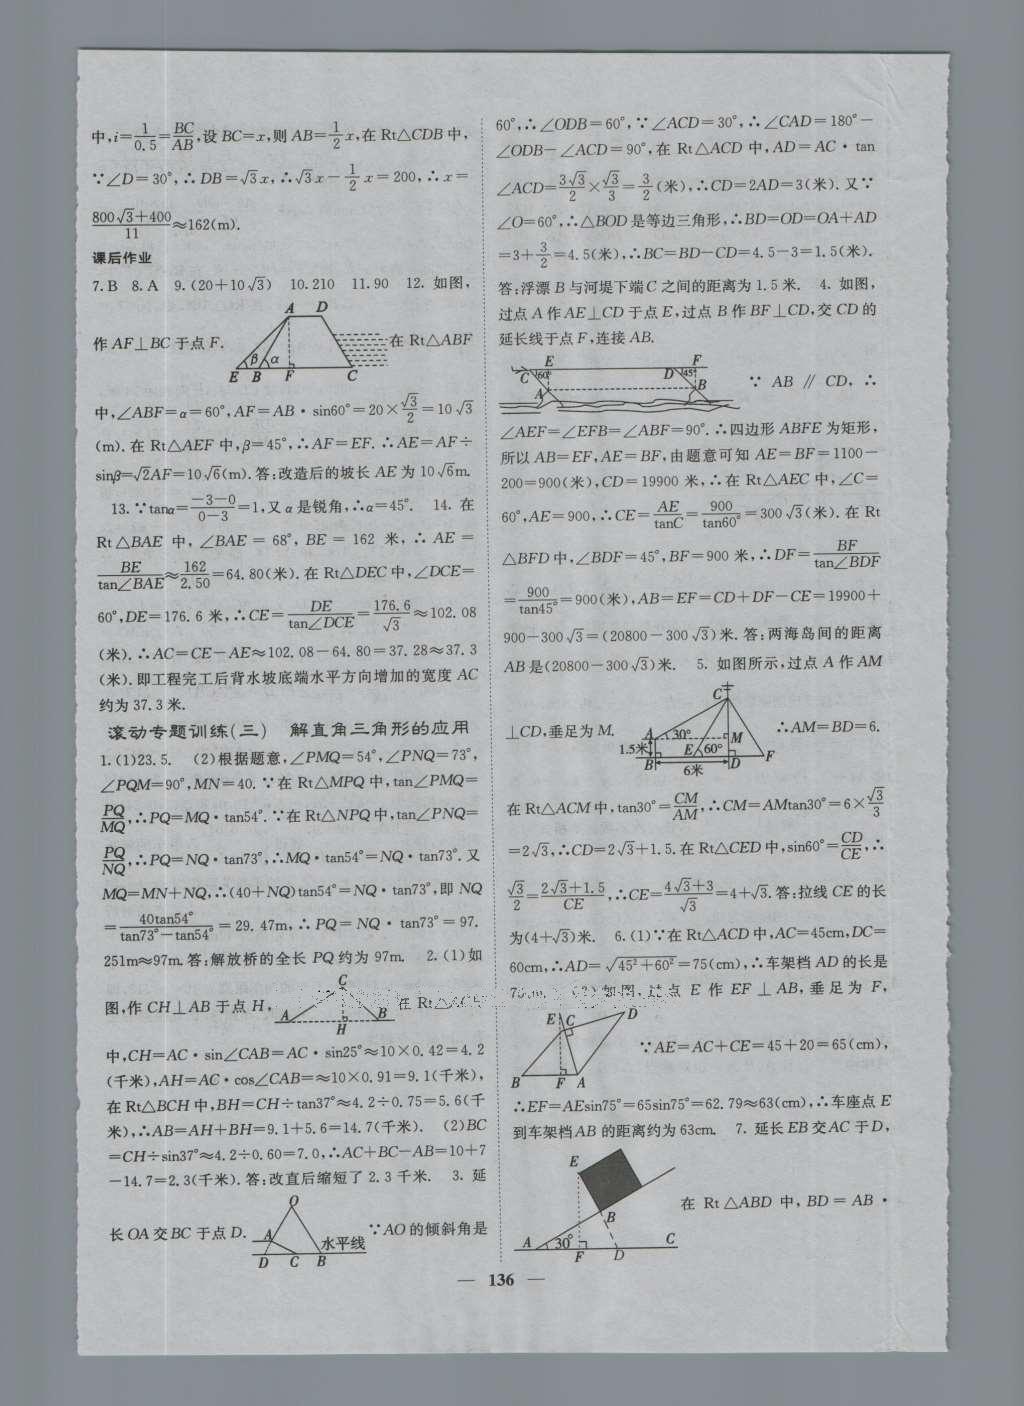 中,i=1/0.5=BC/AB,设 BC=x,则 AB=1/2x,在 Rt△CDB 中,
∵∠D=30°,∴DB=√3x,∴√3x-1/2x=200,∴x=
(800√3+400)/11≈162(m).
课后作业
7.B 8.A 9.(20+10√3) 10.210 11.90 12. 如图,
A D
作 AF⊥BC 于点 F.
β α
在 Rt△ABF
E B F C
中,∠ABF=α=60°,AF=AB·sin60°=20×√3/2=10√3
(m). 在 Rt△AEF 中,β=45°,∴AF=EF.∴AE=AF÷
sinβ=√2AF=10√6(m). 答:改造后的坡长 AE 为 10√6m.
13.∵tanα=(-3-0)/(0-3)=1,又 α 是锐角,∴α=45°. 14. 在
Rt△BAE 中, ∠BAE = 68°, BE = 162 米, ∴ AE =
BE/tan∠BAE≈162/2.50=64.80(米). 在 Rt△DEC 中,∠DCE=
60°,DE=176.6 米,∴CE=DE/tan∠DCE=176.6/√3≈102.08
(米).∴AC=CE-AE≈102.08-64.80=37.28≈37.3
(米). 即工程完工后背水坡底端水平方向增加的宽度 AC
约为 37.3 米.
滚动专题训练(三) 解直角三角形的应用
1.(1)23.5. (2)根据题意,∠PMQ=54°,∠PNQ=73°,
∠PQM=90°,MN=40.∵在 Rt△MPQ 中,tan∠PMQ=
PQ/MQ,∴PQ=MQ·tan54°.∵在 Rt△NPQ 中,tan∠PNQ=
PQ/NQ,∴PQ=NQ·tan73°,∴MQ·tan54°=NQ·tan73°. 又
MQ=MN+NQ,∴(40+NQ)tan54°=NQ·tan73°,即 NQ
=40tan54°/(tan73°-tan54°)=29.47m,∴PQ=NQ·tan73°=97.
251m≈97m. 答:解放桥的全长 PQ 约为 97m. 2.(1)如
C
图,作 CH⊥AB 于点 H,
A B
在 Rt△ACH
H
中,CH=AC·sin∠CAB=AC·sin25°≈10×0.42=4.2
(千米),AH=AC·cos∠CAB=≈10×0.91=9.1(千米),
在 Rt△BCH 中,BH=CH÷tan37°≈4.2÷0.75=5.6(千
米),∴AB=AH+BH=9.1+5.6=14.7(千米). (2)BC
=CH÷sin37°≈4.2÷0.60=7.0,∴AC+BC-AB=10+7
-14.7=2.3(千米). 答:改直后缩短了 2.3 千米. 3. 延
O
长 OA 交 BC 于点 D.
A
水平线
D C B
∵AO 的倾斜角是
60°,∴∠ODB=60°,∵∠ACD=30°,∴∠CAD=180°-
∠ODB-∠ACD=90°,在 Rt△ACD 中,AD=AC·tan
∠ACD=3√3/2×√3/3=3/2(米),∴CD=2AD=3(米). 又∵
∠O=60°,∴△BOD 是等边三角形,∴BD=OD=OA+AD
=3+3/2=4.5(米),∴BC=BD-CD=4.5-3=1.5(米).
答:浮漂 B 与河堤下端 C 之间的距离为 1.5 米. 4. 如图,
过点 A 作 AE⊥CD 于点 E,过点 B 作 BF⊥CD,交 CD 的
延长线于点 F,连接 AB.
E F
C 60° D 45°
A B
∵ AB ∥ CD, ∴
∠AEF=∠EFB=∠ABF=90°.∴四边形 ABFE 为矩形,
所以 AB=EF,AE=BF,由题意可知 AE=BF=1100-
200=900(米),CD=19900 米,∴在 Rt△AEC 中,∠C=
60°,AE=900,∴CE=AE/tanC=900/tan60°=300√3(米). 在 Rt
△BFD 中,∠BDF=45°,BF=900 米,∴DF=BF/tan∠BDF
=900/tan45°=900(米),AB=EF=CD+DF-CE=19900+
900-300√3=(20800-300√3)米. 答:两海岛间的距离
AB 是(20800-300√3)米. 5. 如图所示,过点 A 作 AM
C
⊥CD,垂足为 M.
A 30° M
1.5米 E 60°
B D F
6米
∴AM=BD=6.
在 Rt△ACM 中,tan30°=CM/AM,∴CM=AMtan30°=6×√3/3
=2√3,∴CD=2√3+1.5. 在 Rt△CED 中,sin60°=CD/CE,∴
√3/2=(2√3+1.5)/CE,∴CE=(4√3+3)/√3=4+√3. 答:拉线 CE 的长
为(4+√3)米. 6.(1)∵在 Rt△ACD 中,AC=45cm,DC=
60cm,∴AD=√(45²+60²)=75(cm),∴车架档 AD 的长是
75cm. (2)如图,过点 E 作 EF⊥AB,垂足为 F,
E C D
B F A
∵AE=AC+CE=45+20=65(cm),
∴EF=AEsin75°=65sin75°=62.79≈63(cm),∴车座点 E
到车架档 AB 的距离约为 63cm. 7. 延长 EB 交 AC 于 D,
E
B
A 30° F D C
在 Rt△ABD 中, BD = AB·
— 136 —